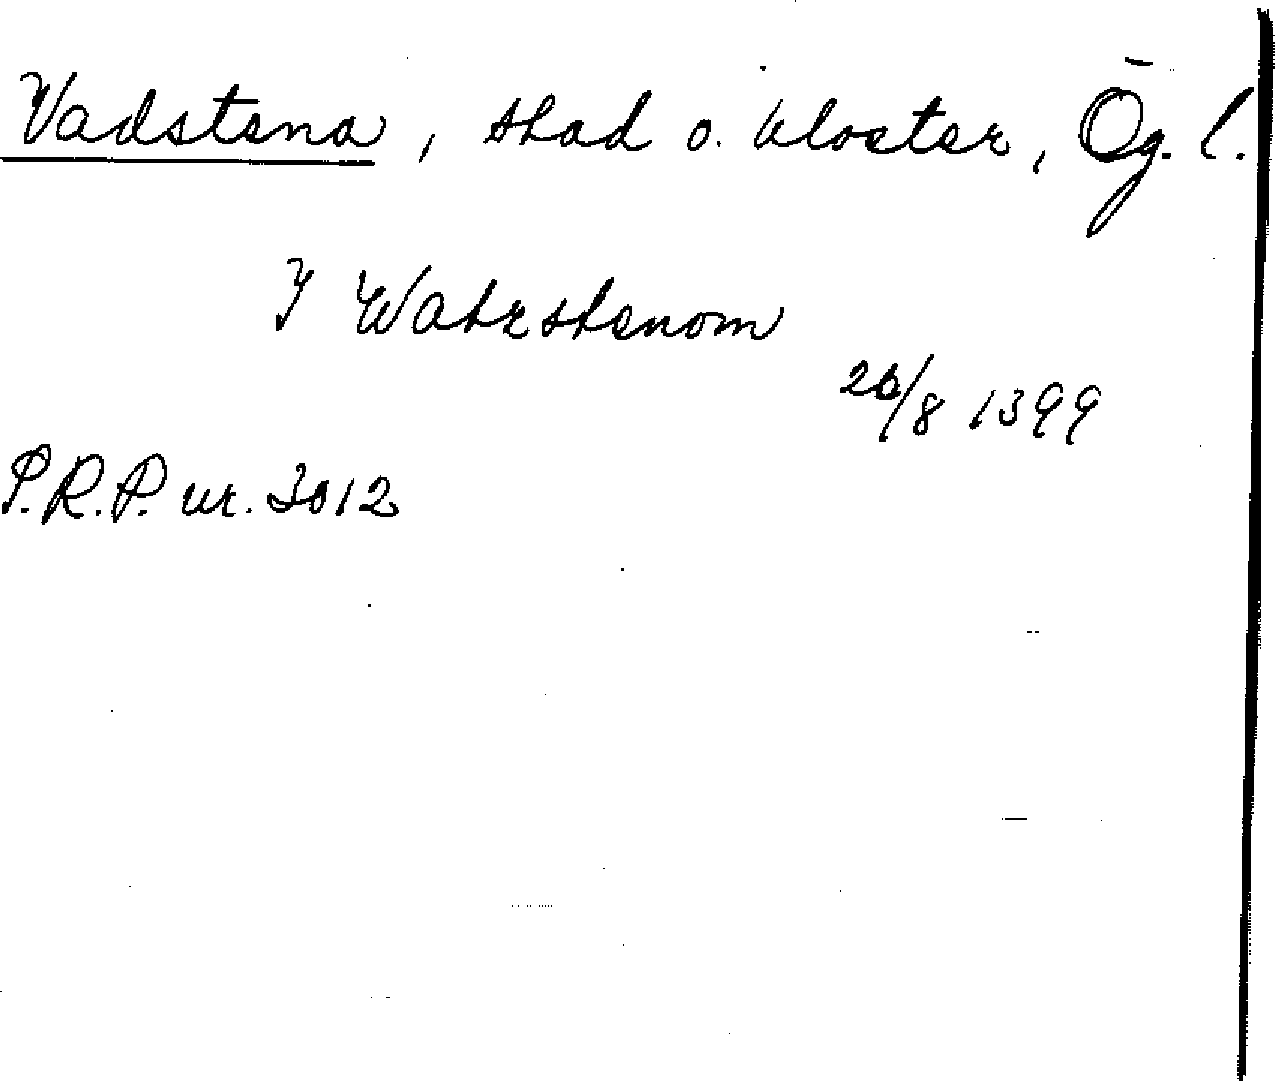 Vadstena, stad o. kloster, Ög. l.
J Watzstenom
26/8 1399
P.R.P. nr. 3012